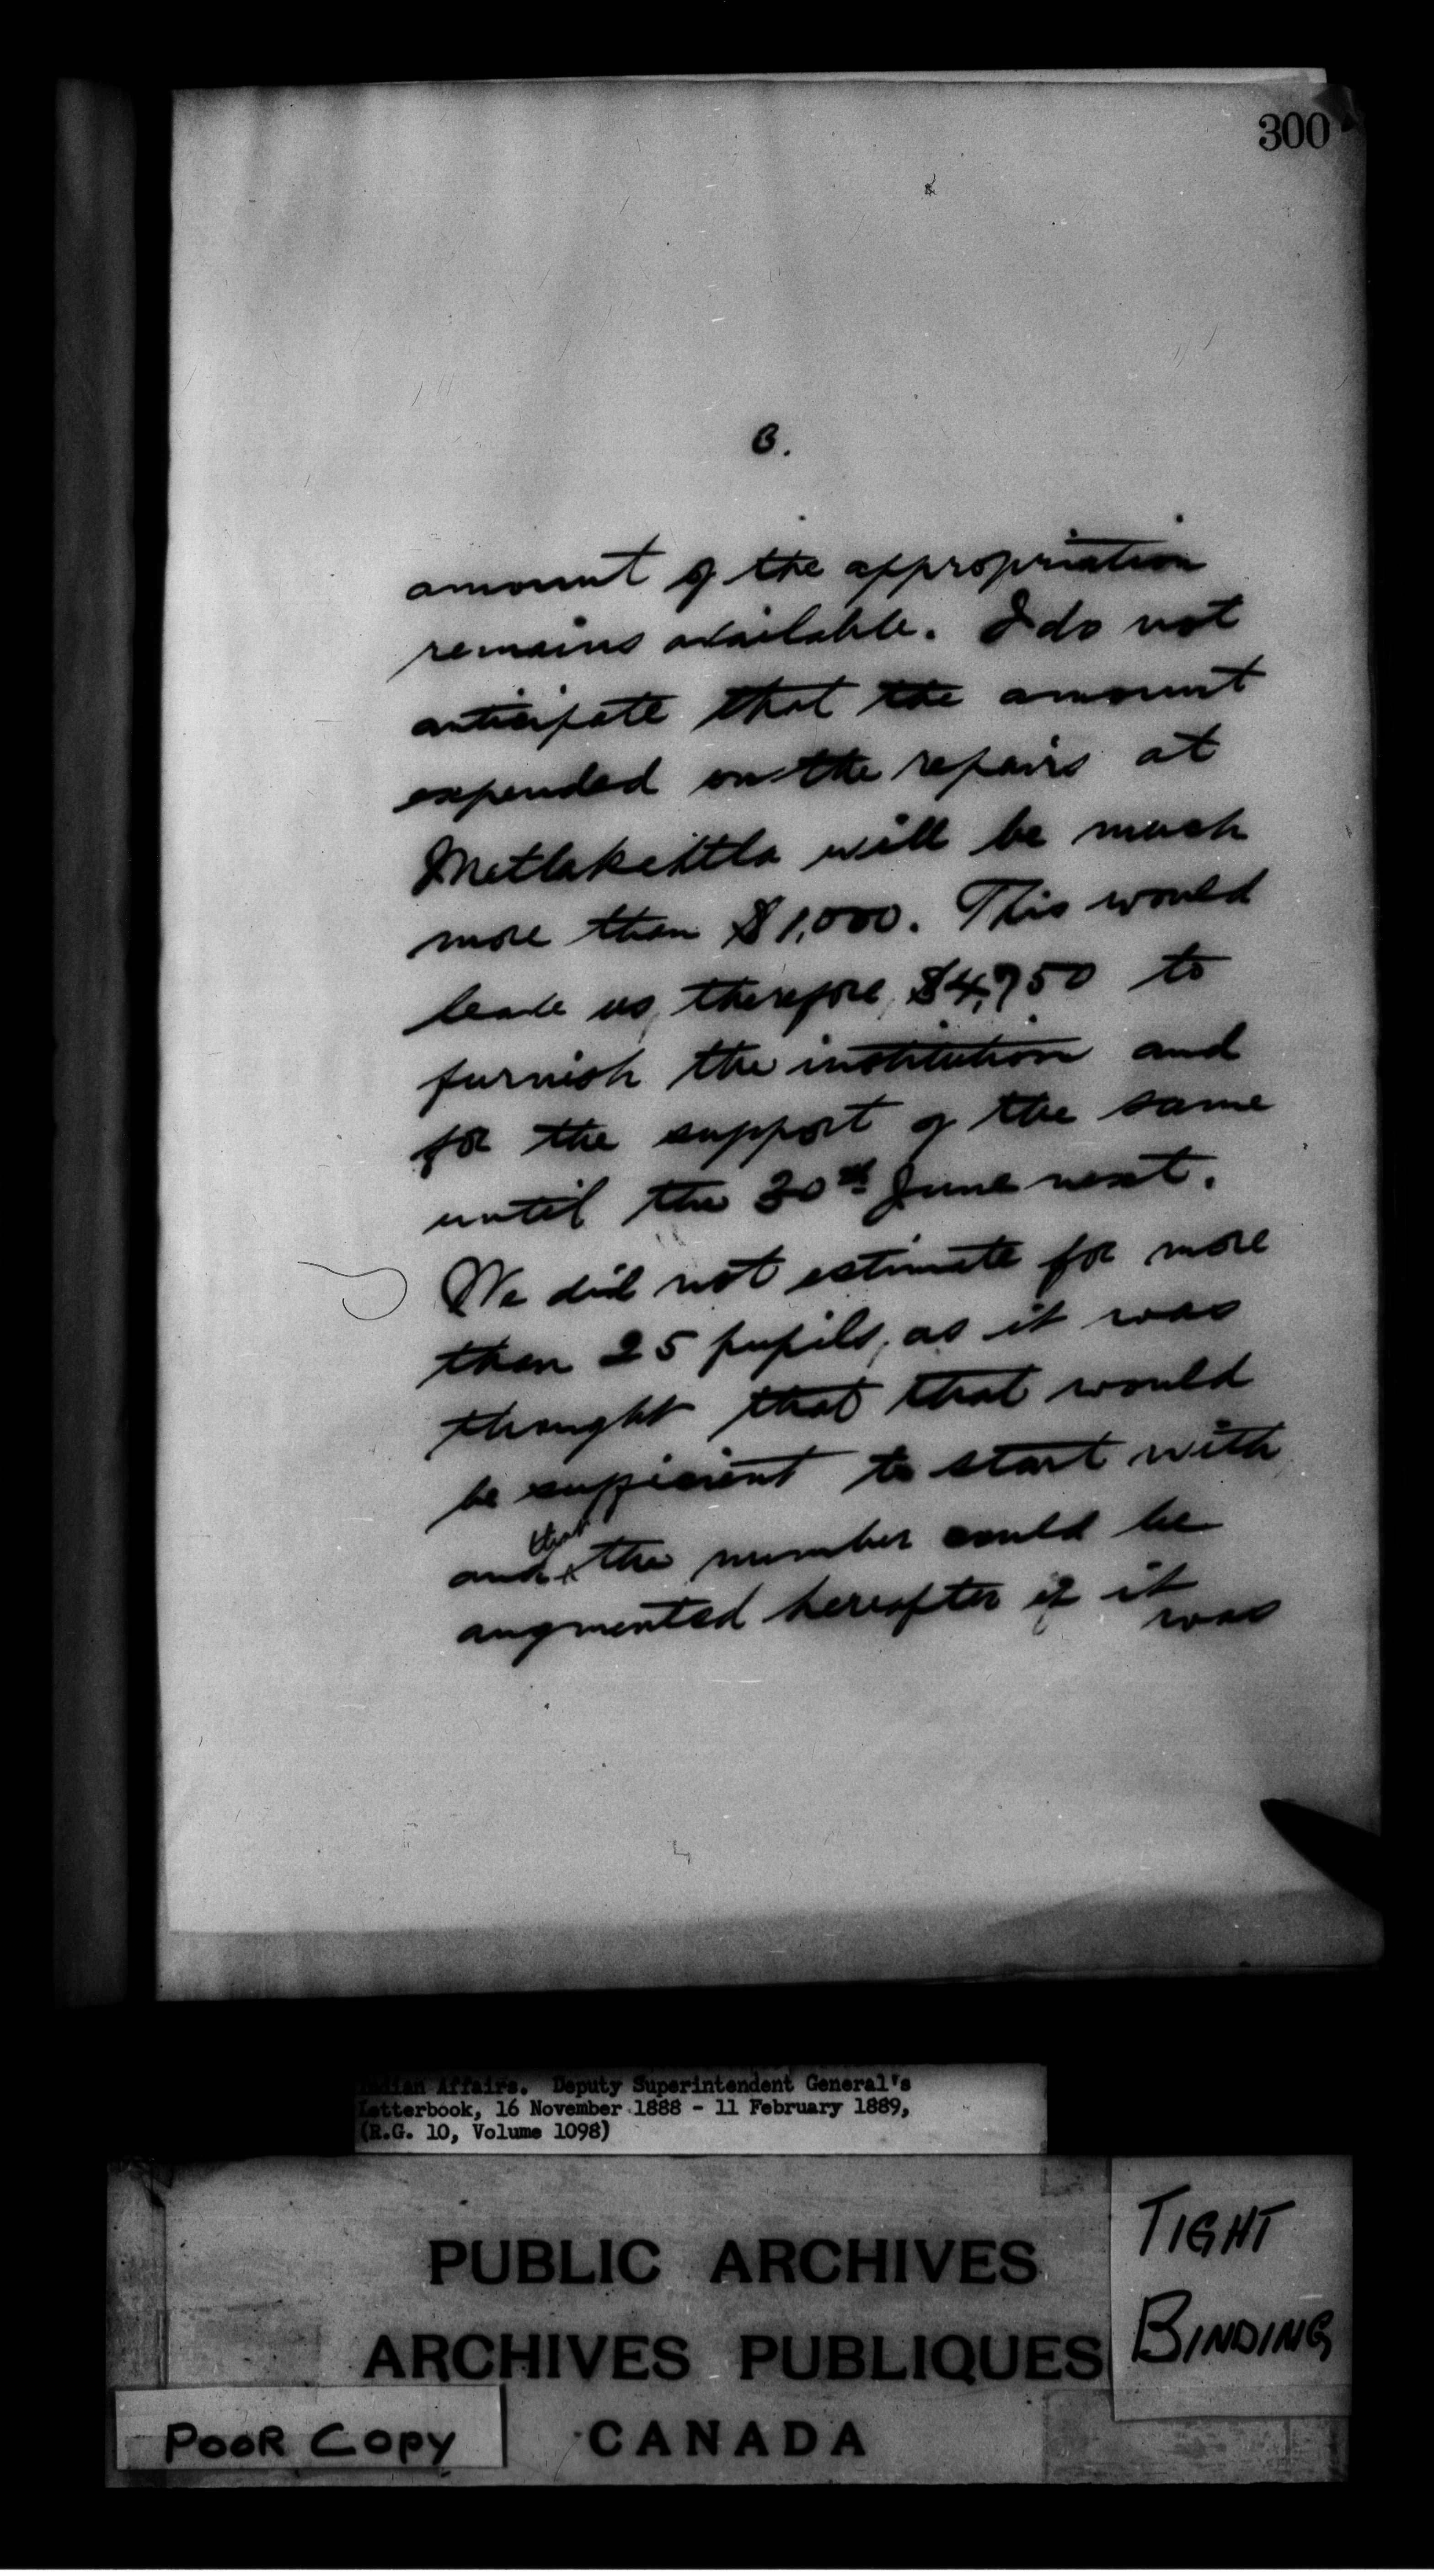 300
3.
amount of the appropriation
remains available. I do not
anticipate that the amount
expended on the repairs at
Metlakahtla will be much
more than $1,000. This would
leave us, therefore, $4,750 to
furnish the institution and
for the support of the same
until the 30th June next.
We did not estimate for more
than 25 pupils, as it was
thought that that would
be sufficient to start with
that
and the number could be
augmented hereafter if it
was
Indian Affairs. Deputy Superintendent General's
Letterbook, 16 November 1888 - 11 February 1889,
(R.G. 10, Volume 1098)
PUBLIC ARCHIVES
ARCHIVES PUBLIQUES
CANADA
TIGHT
BINDING
POOR COPY